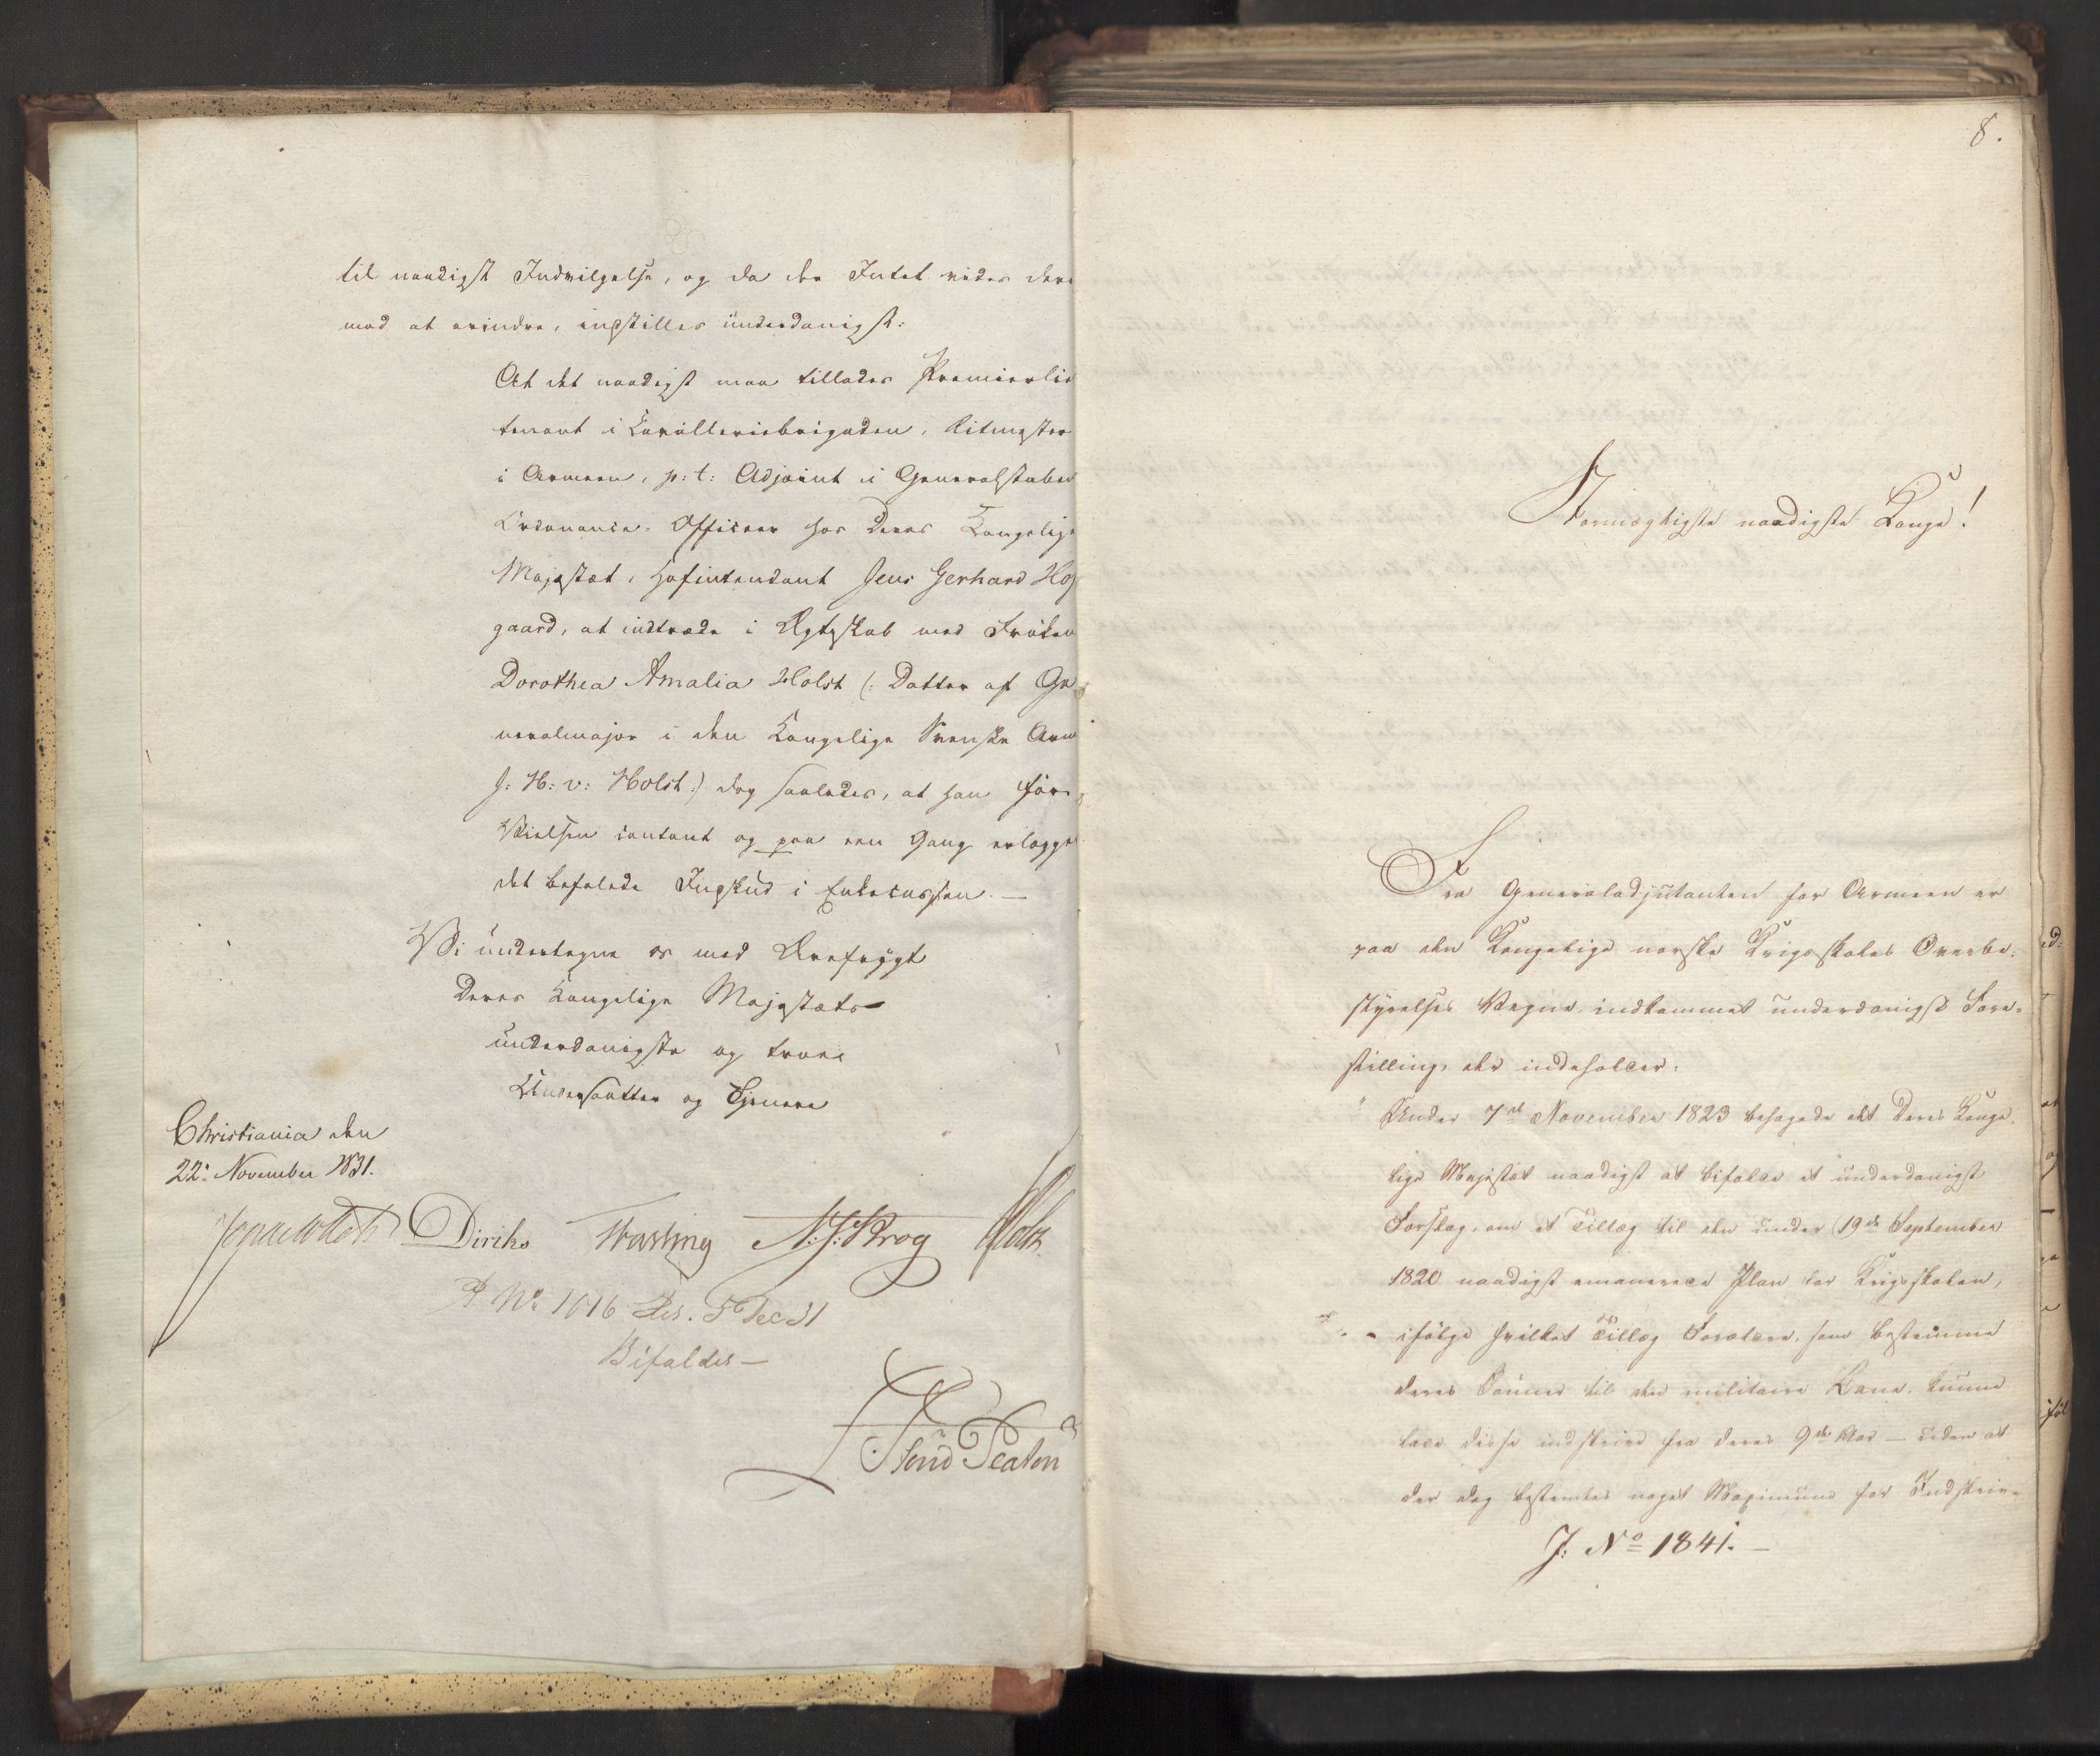 til naadigst Indvilgelse, og da der Intet vides der
mod at erindre, indstilles underdanigst:
At det naadigst maa tillades Premierlie
tenant i Cavalleriebrigaden, Ritmester
i Armeen, p: t: Adjoint i Generalstaben
Ordonance-Officeer hos Deres Kongelige
Majestæt, Hofintendant Jens Gerhard Hof
gaard, at indtræde i Ægteskab med Frøken
Dorothea Amalia Holst (: Datter af Ge
neralmajor i den Kongelige Svenske Arm
J: H: v: Holst:) dog saaledes, at han før
Vielsen contant og paa een Gang erlægge
det befalede Indskud i Enkecassen. —
Vi undertegne os med Ærefrygt
Deres Kongelige Majestæts
underdanigste og troe
Undersaatter og Tjenere
Christiania den
22: November 1831.
Diriks N: J: Krog Holst
R No 1016 Res. 5 Dec 31
Bifaldes —
8.
Stormægtigste naadigste Konge!
Fra Generaladjutanten for Armeen er
paa den Kongelige norske Krigsskoles Overbe-
styrelses Vegne indkommet underdanigst Fore-
stilling, der indeholder:
" Under 7de November 1823 behagede det Deres Konge-
lige Majestæt naadigst at bifalde et underdanigst
Forslag, om et Tillæg til den under 19de September
1820 naadigst emanerede Plan for Krigsskolen,
ifølge hvilket Tillæg Forældre, som bestemme
deres Sønner til den militaire Bane, kunne
lade disse indskrive fra deres 9de Aar — uden at
der dog bestemtes noget Maximum for Indskriv-
J: No 1841. —